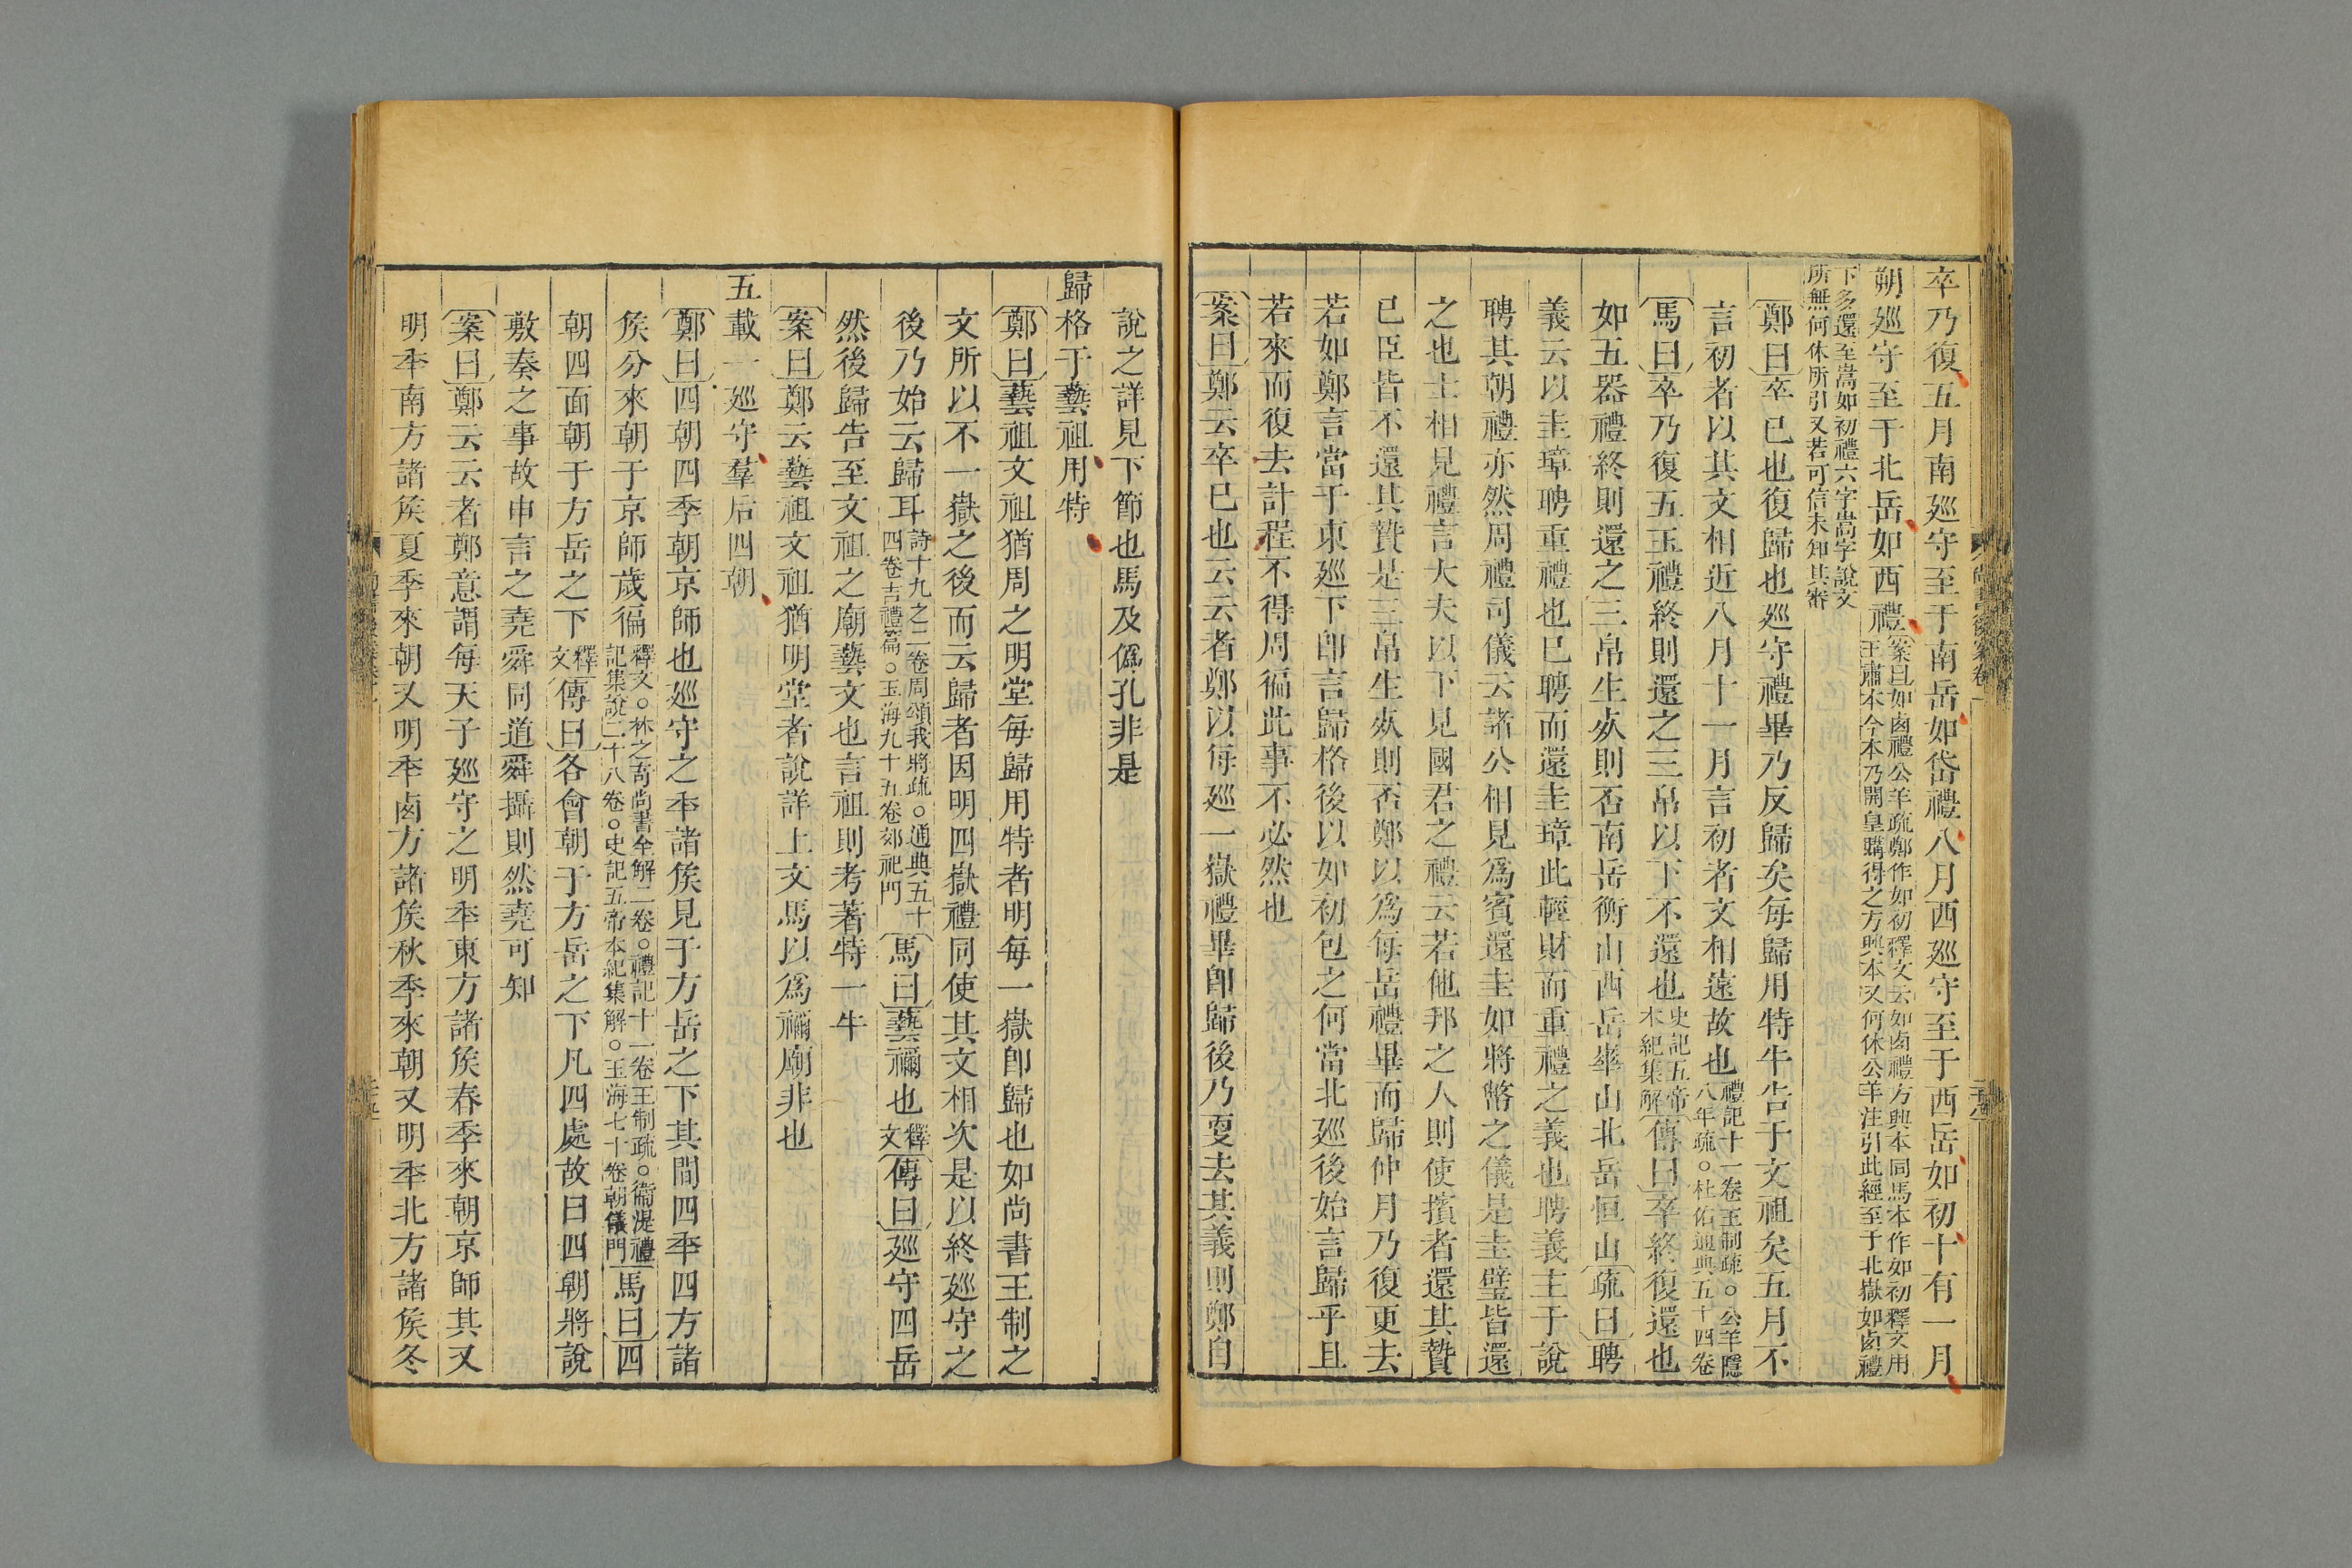 卒乃復五月南廵守至于南岳如岱禮八月西廵守至于西岳如初十有一月
朔廵守至于北岳如西禮案曰如卤禮公羊疏鄭作如初釋文云如卤禮方興本同馬本作如初釋文用
王肅本今本乃開皇購得之方興本又何休公羊注引此經至于北嶽如卤禮
下多還至嵩如初禮六字嵩字說文
所無何休所引又若可信未知其審
鄭曰卒已也復歸也廵守禮畢乃反歸矣每歸用特牛告于文祖矣五月不
言初者以其文相近八月十一月言初者文相遠故也禮記十一卷王制疏○公羊隱
八年疏○杜佑通典五十四卷
馬曰卒乃復五玉禮終則還之三帛以下不還也史記五帝
本紀集解傳曰卒終復還也
如五器禮終則還之三帛生𣦸則否南岳衡山西岳崋山北岳恒山疏曰聘
義云以圭璋聘重禮也已聘而還圭璋此輕財而重禮之義也聘義主于說
聘其朝禮亦然周禮司儀云諸公相見爲賓還圭如將幣之儀是圭璧皆還
之也士相見禮言大夫以下見國君之禮云若他邦之人則使擯者還其贄
已臣皆不還其贄是三帛生𣦸則否鄭以爲每岳禮畢而歸仲月乃復更去
若如鄭言當于東廵下卽言歸格後以如初包之何當北廵後始言歸乎且
若來而復去計程不得周徧此事不必然也
案曰鄭云卒已也云云者鄭以每廵一嶽禮畢卽歸後乃㪅去其義則鄭自
說之詳見下節也馬及僞孔非是
歸格于藝祖用特
鄭曰藝祖文祖猶周之明堂每歸用特者明每一嶽卽歸也如尚書王制之
文所以不一嶽之後而云歸者因明四嶽禮同使其文相次是以終廵守之
後乃始云歸耳詩十九之二卷周頌我將疏○通典五十
四卷吉禮篇○玉海九十五卷郊祀門馬曰藝禰也釋
文傳曰廵守四岳
然後歸告至文祖之廟藝文也言祖則考著特一牛
案曰鄭云藝祖文祖猶明堂者說詳上文馬以爲禰廟非也
五載一廵守羣后四朝
鄭曰四朝四季朝京師也廵守之秊諸侯見于方岳之下其間四秊四方諸
侯分來朝于京師歲徧釋文○林之奇尚書全解二卷○禮記十一卷王制疏○衞湜禮
記集說二十八卷○史記五帝本紀集解○玉海七十卷朝儀門馬曰四
朝四面朝于方岳之下釋
文傳曰各會朝于方岳之下凡四處故曰四朝將說
敷奏之事故申言之堯舜同道舜攝則然堯可知
案曰鄭云云者鄭意謂每天子廵守之明秊東方諸侯春季來朝京師其又
明秊南方諸侯夏季來朝又明秊卤方諸侯秋季來朝又明秊北方諸侯冬